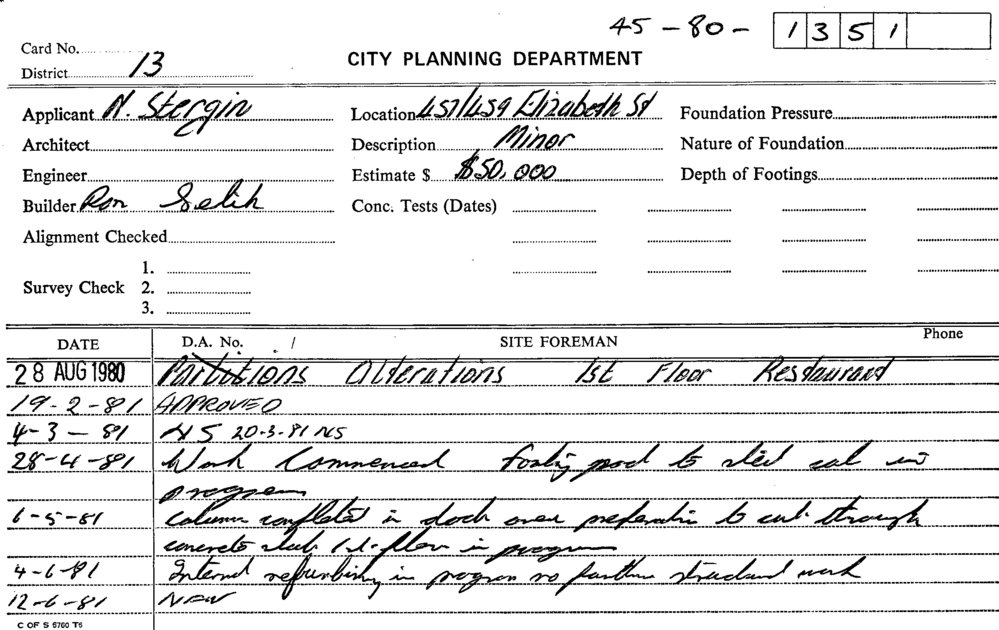 45 - 80 - 1351
Card No.
CITY PLANNING DEPARTMENT
District 13
Applicant N. Stergin Location 457/459 Elizabeth St Foundation Pressure
Architect Description Minor Nature of Foundation
Engineer Estimate $ $50,000 Depth of Footings
Builder Ron Selih Conc. Tests (Dates)
Alignment Checked
Survey Check 1.
2.
3.
DATE D.A. No. / SITE FOREMAN Phone
28 AUG 1980 Partitions Alterations 1st Floor Restaurant
19-2-81 APPROVED
4-3-81 NS 20-3-81 NS
28-4-81 Work Commenced footing to steel in
progress
6-5-81 column completed in dock area to cut through
concrete slab 1st floor in progress
4-6-81 Internal refurbishing in progress no further structural work
12-6-81 NFW
C OF S 6760 T6